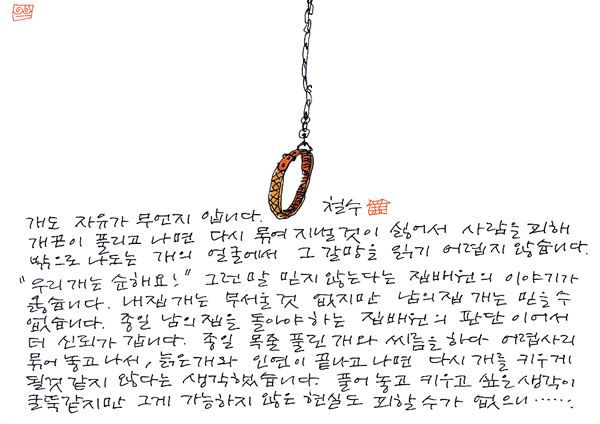 개도 자유가 무언지 압니다. 철수
개끈이 풀리고 나면 다시 묶여 지낼것이 싫어서 사람을 피해
밖으로 나도는 개의 얼굴에서 그 갈망을 읽기 어렵지 않습니다.
"우리개는 순해요!" 그런말 믿지않는다는 집배원의 이야기가
옳습니다. 내집개는 무서울것 없지만 남의집 개는 믿을수
없습니다. 종일 남의집을 돌아야하는 집배원의 판단이어서
더 신뢰가 갑니다. 종일 목줄 풀린 개와 씨름을 하다 어렵사리
묶어 놓고 나서, 늙은개와 인연이 끝나고 나면 다시 개를 키우게
될것 같지 않다는 생각했습니다. 풀어 놓고 키우고 싶은 생각이
굴뚝같지만 그게 가능하지 않은 현실도 피할수가 없으니······.